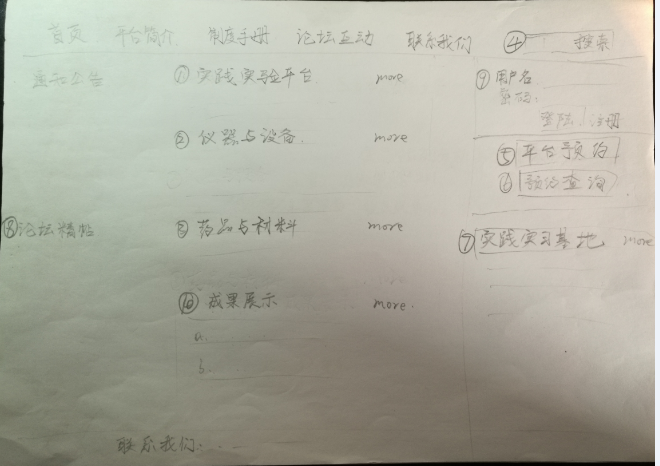 首页 平台简介 制度手册 论坛互动 联系我们 ④ 搜索
通知公告
① 实践实验平台 more
② 仪器与设备 more
⑧论坛精帖
③ 药品与材料 more
⑩ 成果展示 more.
a.
b.
联系我们....
⑨ 用户名
密码:
登陆/注册
⑤ 平台预约
⑥ 预约查询
⑦ 实践实习基地 more